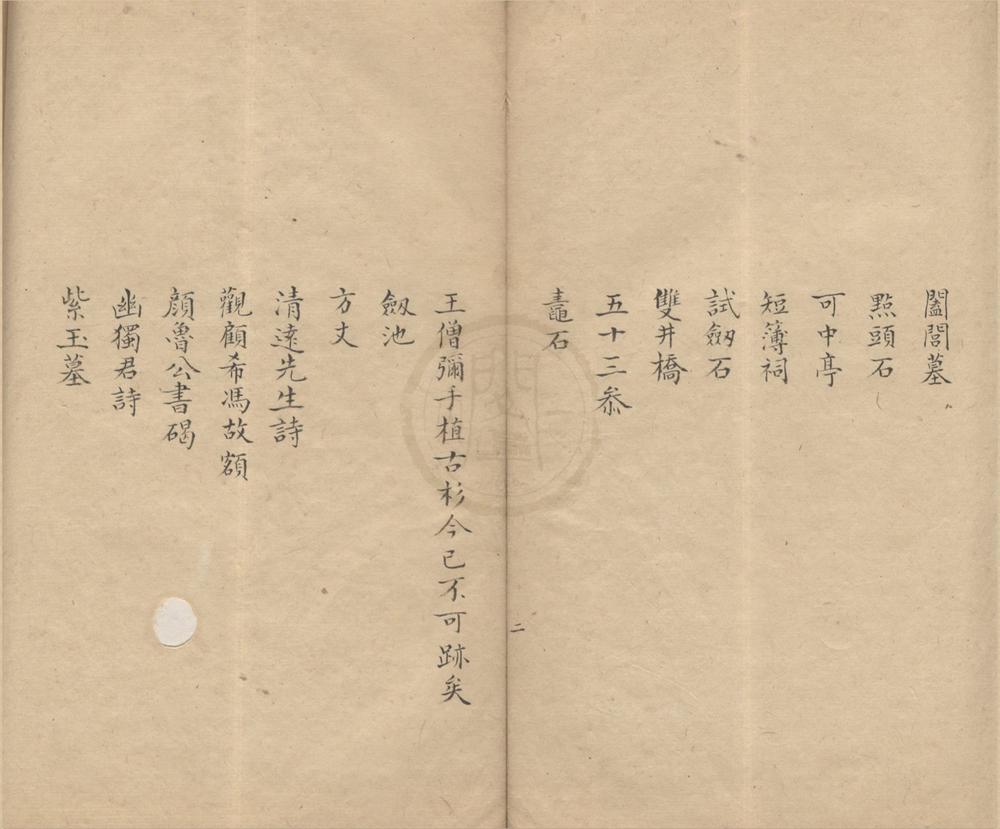 闔閭墓
點頭石
可中亭
短簿祠
試劔石
雙井橋
五十三叅
鼃石
二
王僧彌手植古杉今已不可跡矣
劔池
方丈
清遠先生詩
觀顧希馮故額
顔魯公書碣
幽獨君詩
紫玉墓